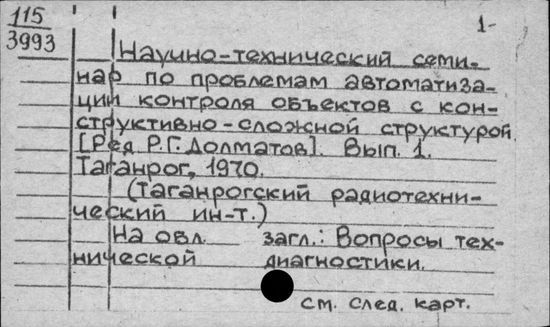 115
3993
1-
Научно-технический семи-
нар по проблемам автоматиза-
ции контроля объектов с кон-
структивно-сложной структурой.
[Ред. Р.Г. Долматов]. Вып. 1.
Таганрог, 1970.
(Таганрогский радиотехни-
ческий ин-т.)
На обл. загл.: Вопросы тех-
нической диагностики.
см. след. карт.